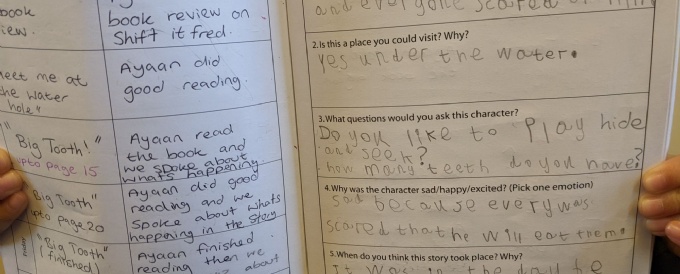 book
iew.
book review on
Shift it fred.
eet me at
he water
hole"
Ayaan did
good reading.
"Big Tooth!"
upto page 15
Ayaan read
the book and
we spoke about
whats happening
Big Tooth"
upto page 20
Ayaan did good
reading and we
spoke about whats
happening in the story
Friday
"Big Tooth"
(finished)
Ayaan finished
reading then we
about
and everyone scared of
2.Is this a place you could visit? Why?
yes under the water.
3.What questions would you ask this character?
Do you like to Play hide
and seek?
how many teeth do you have?
4.Why was the character sad/happy/excited? (Pick one emotion)
sad because every was
scared that he will eat them.
5.When do you think this story took place? Why?
It was in the day